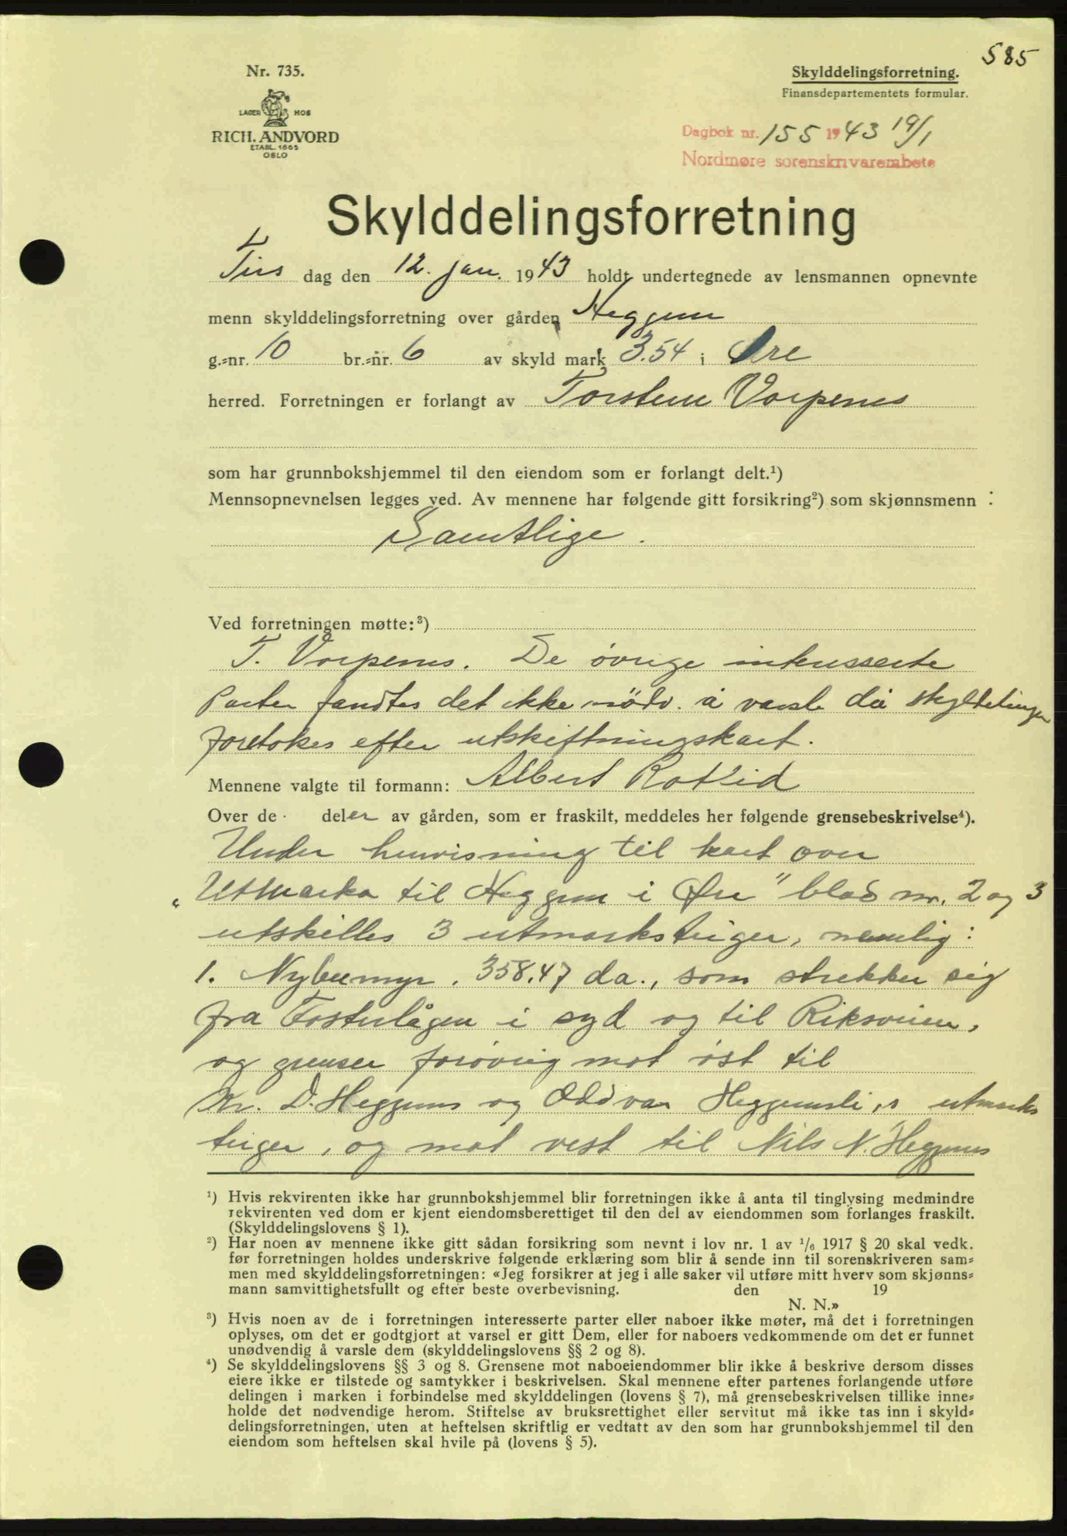 585
Nr. 735.
Skylddelingsforretning.
Finansdepartementets formular.
LAGER HOS
RICH. ANDVORD
ETABL. 1865
OSLO
Dagbok nr. 155 1943 19/1
Nordmøre sorenskriverembete
Skylddelingsforretning
Tirs dag den 12. jan. 1943 holdt undertegnede av lensmannen opnevnte
menn skylddelingsforretning over gården Heggem
g.=nr. 10 br.=nr. 6 av skyld mark 3.54 i Øre
herred. Forretningen er forlangt av Torstein Vorpenes
som har grunnbokshjemmel til den eiendom som er forlangt delt.¹)
Mennsopnevnelsen legges ved. Av mennene har følgende gitt forsikring²) som skjønnsmenn :
Samtlige.
Ved forretningen møtte:³)
T. Vorpenes. De øvrige interesserte
Parter fandtes det ikke nödv. å varsle da skylddelingen
foretokes efter utskiftningskart.
Mennene valgte til formann: Albert Rotlid
Over de deler av gården, som er fraskilt, meddeles her følgende grensebeskrivelse⁴).
Under henvisning til kart over
"Utmarka til Heggem i Øre" blad nr. 2 og 3
utskilles 3 utmarksteiger, nemlig:
1. Nybumyr. 358.47 da., som strekker sig
fra Fosterlågen i syd og til Riksveien,
og grenser forøvrig mot öst til
Kr. D. Heggems og Oddvar Heggemsli,s utmarks
teiger, og mot vest til Nils N. Heggems
¹) Hvis rekvirenten ikke har grunnbokshjemmel blir forretningen ikke å anta til tinglysing medmindre
rekvirenten ved dom er kjent eiendomsberettiget til den del av eiendommen som forlanges fraskilt.
(Skylddelingslovens § 1).
²) Har noen av mennene ikke gitt sådan forsikring som nevnt i lov nr. 1 av ¹/₆ 1917 § 20 skal vedk.
før forretningen holdes underskrive følgende erklæring som blir å sende inn til sorenskriveren sam=
men med skylddelingsforretningen: «Jeg forsikrer at jeg i alle saker vil utføre mitt hverv som skjønns=
mann samvittighetsfullt og efter beste overbevisning. den 19
N. N.»
³) Hvis noen av de i forretningen interesserte parter eller naboer ikke møter, må det i forretningen
oplyses, om det er godtgjort at varsel er gitt Dem, eller for naboers vedkommende om det er funnet
unødvendig å varsle dem (skylddelingslovens §§ 2 og 8).
⁴) Se skylddelingslovens §§ 3 og 8. Grensene mot naboeiendommer blir ikke å beskrive dersom disses
eiere ikke er tilstede og samtykker i beskrivelsen. Skal mennene efter partenes forlangende utføre
delingen i marken i forbindelse med skylddelingen (lovens § 7), må grensebeskrivelsen tillike inne=
holde det nødvendige herom. Stiftelse av bruksrettighet eller servitut må ikke tas inn i skyld=
delingsforretningen, uten at heftelsen skriftlig er vedtatt av den som har grunnbokshjemmel til den
eiendom som heftelsen skal hvile på (lovens § 5).